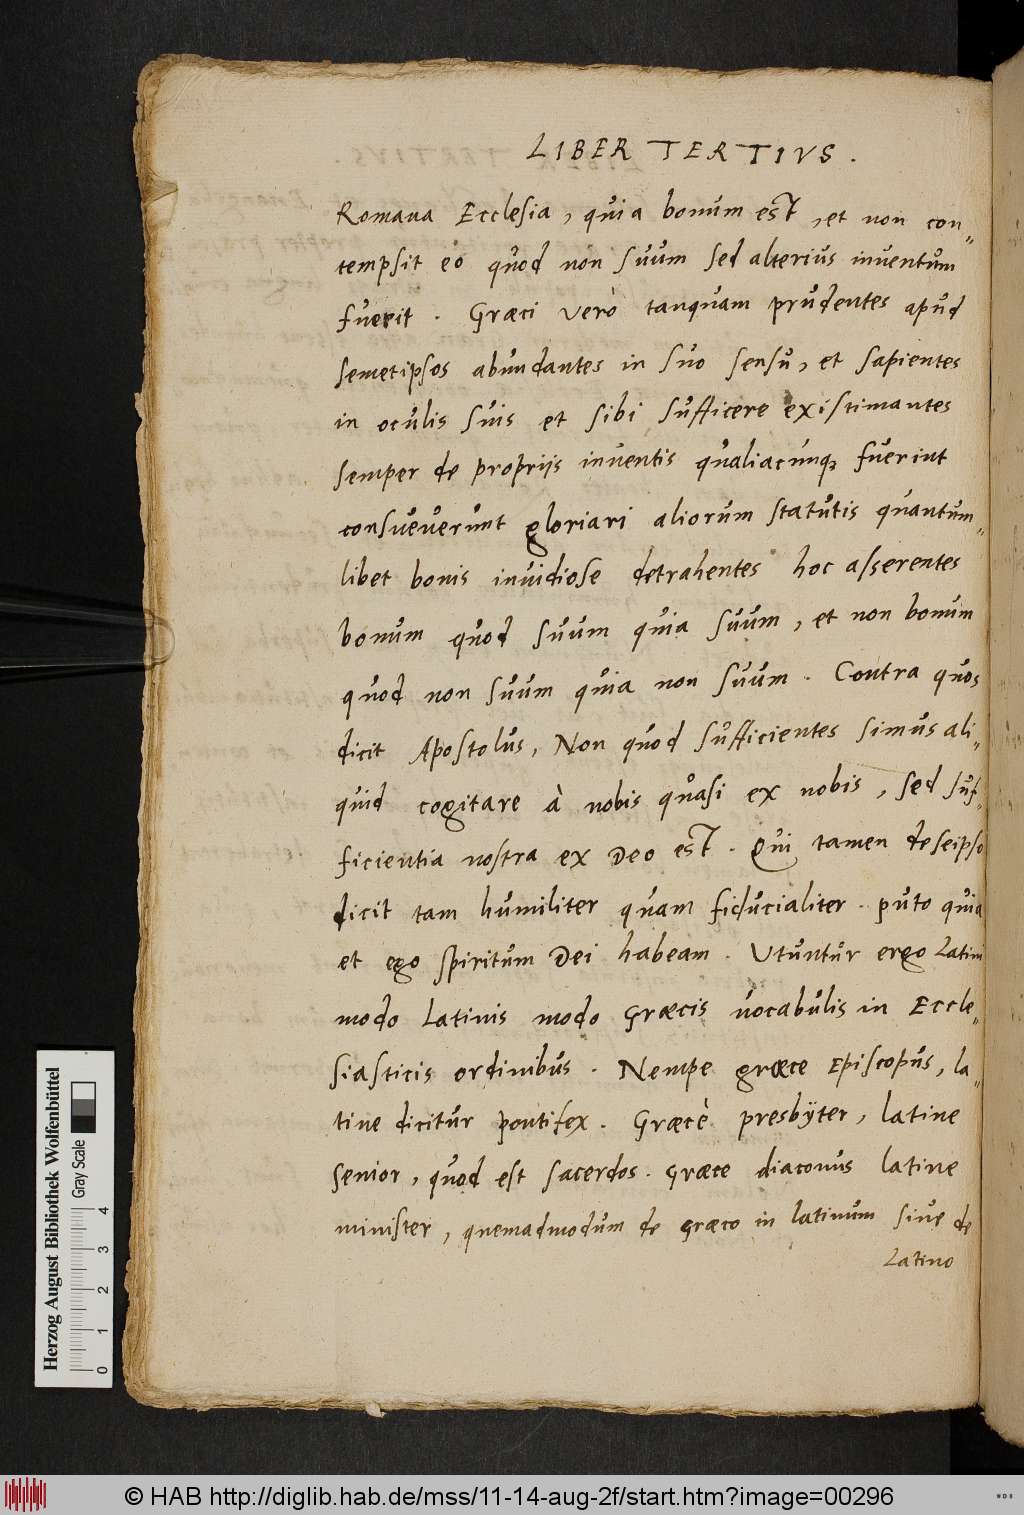 LIBER TERTIVS.
Romana Ecclesia, quia bonum est, et non con=
tempsit eò quod non suum sed alterius inventum
fuerit. Græci verò tanquam prudentes apud
semetipsos abundantes in suo sensu, et sapientes
in oculis suis et sibi sufficere existimantes
semper de proprijs inventis qualiacunq; fuerint
consueverunt gloriari aliorum statutis quantum=
libet bonis invidiose detrahentes hoc asserentes
bonum quod suum quia suum, et non bonum
quod non suum quia non suum. Contra quos
dicit Apostolus, Non quod sufficientes simus ali=
quid cogitare à nobis quasi ex nobis, sed suf=
ficientia nostra ex Deo est. Qui tamen de seipso
dicit tam humiliter quam fiducialiter. puto quia
et ego spiritum Dei habeam. Utuntur ergo Latini
modo Latinis modo Græcis vocabulis in Eccle=
siasticis ordinibus. Nempe græce Episcopus, la=
tine dicitur pontifex. Græcè presbÿter, latine
senior, quod est sacerdos. græce diaconus latine
minister, quemadmodum de græco in latinum sive de
Latino
Herzog August Bibliothek Wolfenbüttel
Gray Scale
0 1 2 3 4
© HAB http://diglib.hab.de/mss/11-14-aug-2f/start.htm?image=00296